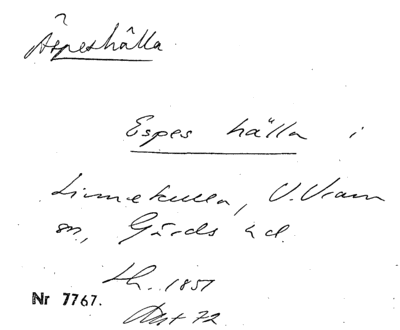 Äspeshälla
Espes hälla i
Linnekulla, V. Vram
sn, Gärds hd.
Lh. 1851
Nr 7767.
72